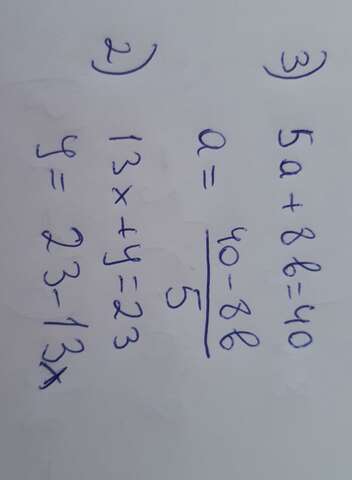 3) 5a + 8b = 40
a = (40 - 8b)/5
2) 13x + y = 23
y = 23 - 13x